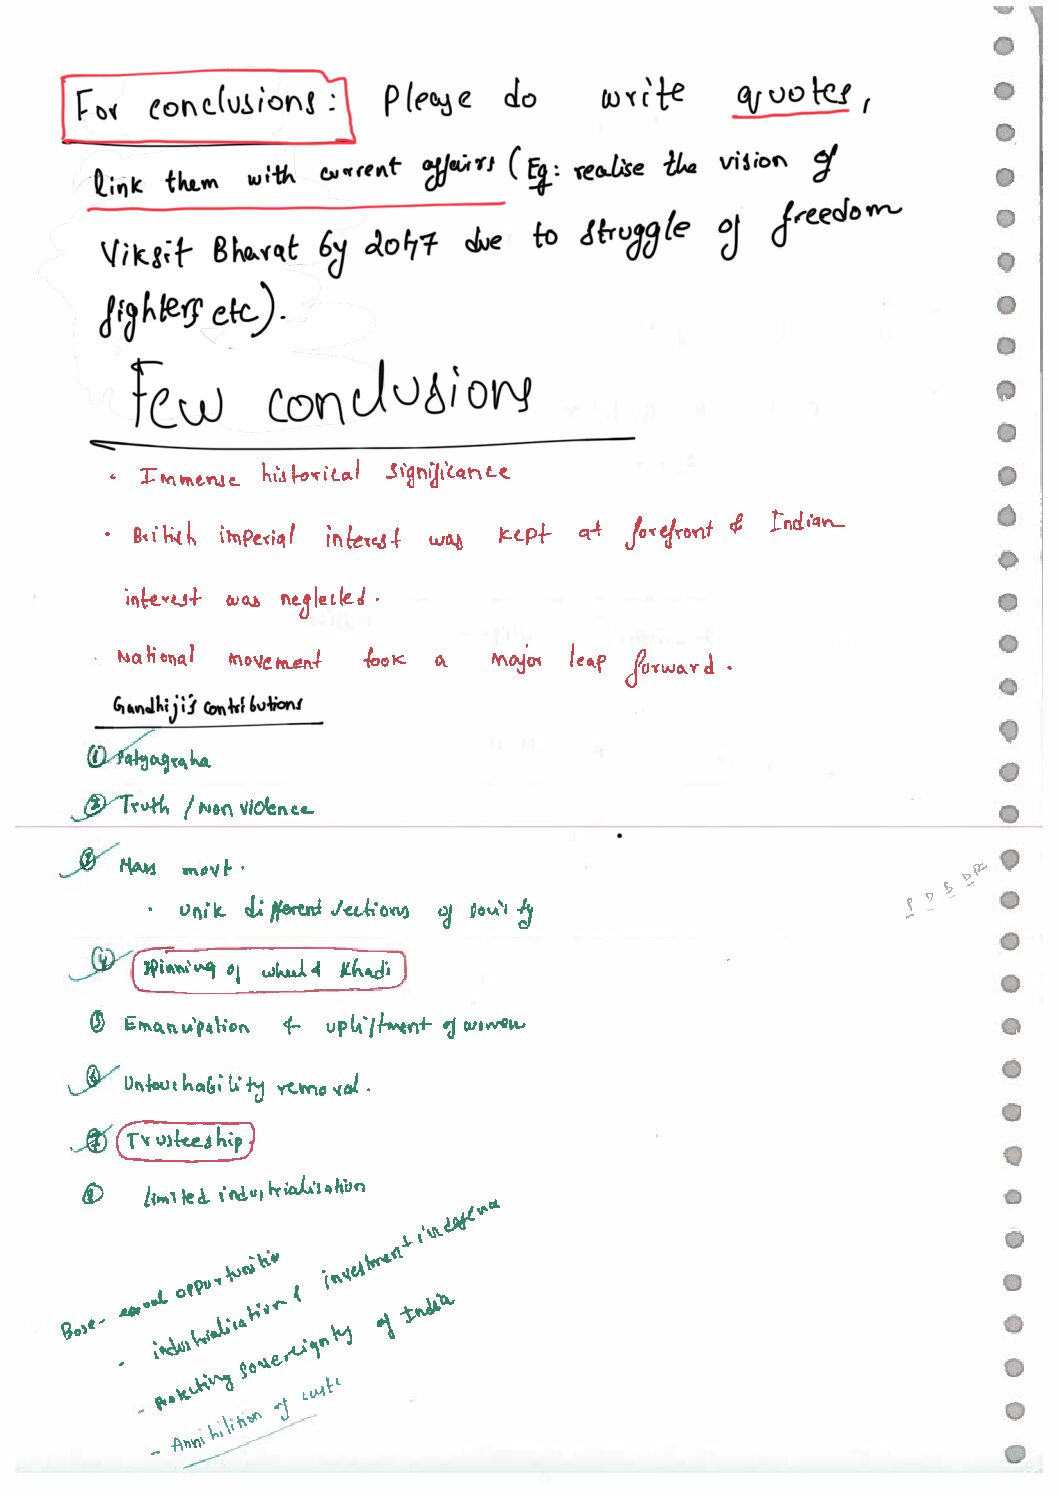 For conclusions: Please do write quotes,
link them with current affairs (Eg: realise the vision of
Viksit Bharat by 2047 due to struggle of freedom
fighters etc).
Few conclusions
· Immense historical significance
· British imperial interest was kept at forefront & Indian
interest was neglected.
· National movement took a major leap forward.
Gandhiji's contributions
① Satyagraha
② Truth / Non violence
③ Mass movt.
· Unite different sections of society
④ Spinning of wheel & Khadi
⑤ Emancipation & upliftment of women
⑥ Untouchability removal.
⑦ Trusteeship
⑧ limited industrialisation
Bose - equal opportunities
- industrialisation & investment in defence
- Protecting sovereignty of India
- Annihilition of caste